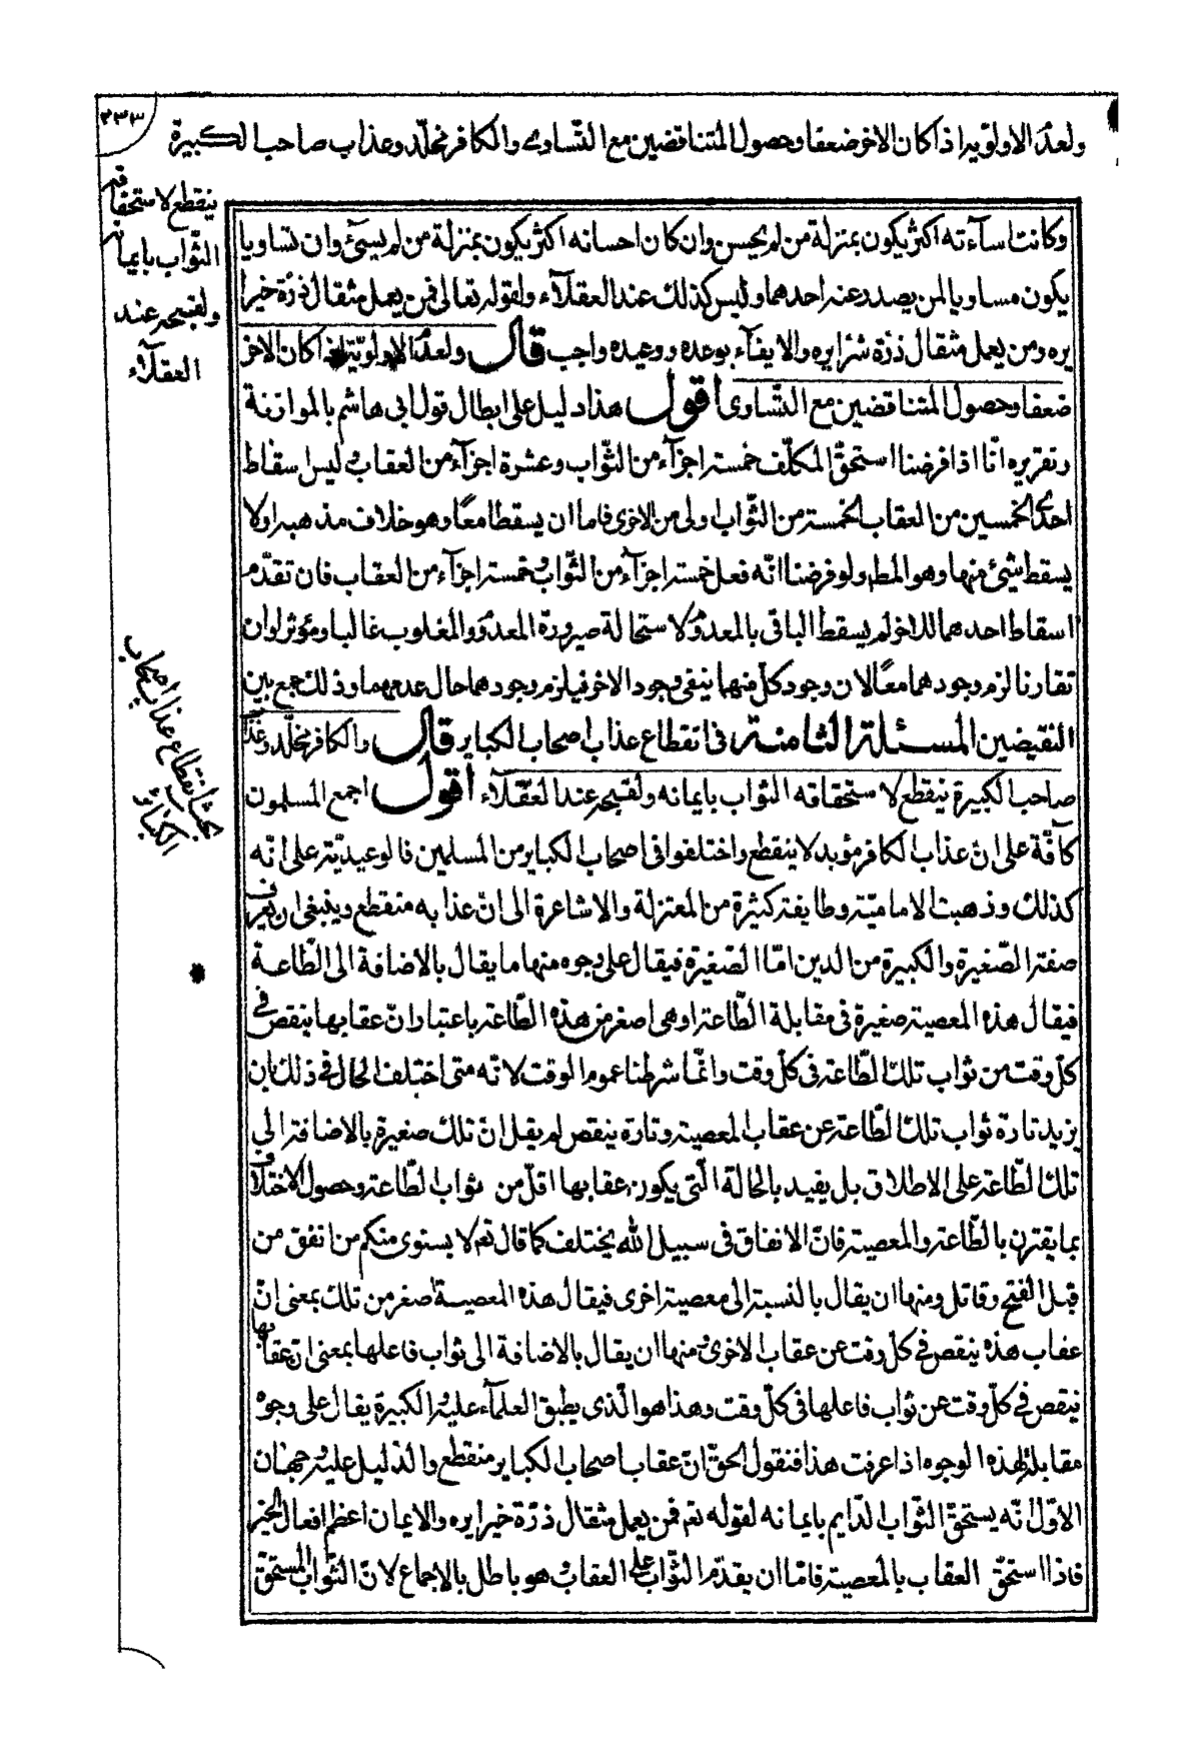 ٢٣٣
ولعدم الاولوية اذا كان الاخر ضعفا وحصول المتناقضين مع التساوى والكافر مخلد وعذاب صاحب الكبيرة
ينقطع لاستحقاقه
الثواب بايمانه
ولقبحه عند
العقلآء
وكانت اسآءته اكثر يكون بمنزلة من لم يحسن وان كان احسانه اكثر يكون بمنزلة من لم يسئ وان تساويا
يكون مساويا لمن يصدر عنه احدهما وليس كذلك عند العقلآء ولقوله تعالى فمن يعمل مثقال ذرة خيرا
يره ومن يعمل مثقال ذرة شرا يره والايفآء بوعده ووعيده واجب قال ولعدم الاولوية اذا كان الاخر
ضعفا وحصول المتناقضين مع التساوى اقول هذا دليل على ابطال قول ابى هاشم بالموازنة
وتقريره انا اذا فرضنا استحق المكلف خمسة اجزآء من الثواب وعشرة اجزآء من العقاب وليس اسقاط
احدى الخمسين من العقاب الخمسة من الثواب اولى من الاخرى فاما ان يسقطا معا وهو خلاف مذهبه او لا
يسقط شئ منها وهو المط ولو فرضنا انه فعل خمسة اجزآء من الثواب وخمسة اجزآء من العقاب فان تقدم
اسقاط احدهما للاخر لم يسقط الباقى بالمعدوم لاستحالة صيرورة المعدوم والمغلوب غالبا ومؤثرا وان
تقارنا لزم وجودهما معا لان وجود كل منهما ينفى وجود الاخر فيلزم وجودهما حال عدمهما وذلك جمع بين
النقيضين المسئلة الثامنة فى انقطاع عذاب اصحاب الكباير قال والكافر مخلد وعذاب
صاحب الكبيرة ينقطع لاستحقاقه الثواب بايمانه ولقبحه عند العقلآء اقول اجمع المسلمون
كآفة على ان عذاب الكافر مؤبد لا ينقطع واختلفوا فى اصحاب الكباير من المسلمين فالوعيدية على انه
كذلك وذهبت الامامية وطايفة كثيرة من المعتزلة والاشاعرة الى ان عذابه منقطع وينبغى ان يعرف
صفة الصغيرة والكبيرة من الدين اما الصغيرة فيقال على وجوه منها ما يقال بالاضافة الى الطاعة
فيقال هذه المعصية صغيرة فى مقابلة الطاعة او هى اصغر من هذه الطاعة باعتبار ان عقابها ينقص فى
كل وقت من ثواب تلك الطاعة فى كل وقت وانما شرطنا عموم الوقت لانه متى اختلف الحال فى ذلك بان
يزيد تارة ثواب تلك الطاعة عن عقاب المعصية وتارة ينقص لم يقل ان تلك صغيرة بالاضافة الى
تلك الطاعة على الاطلاق بل يقيد بالحالة التى يكون عقابها اقل من ثواب الطاعة وحصول الاختلاف
بما يقترن بالطاعة والمعصية فان الانفاق فى سبيل الله يختلف كما قال تعم لا يستوى منكم من انفق من
قبل الفتح وقاتل ومنها ان يقال بالنسبة الى معصية اخرى فيقال هذه المعصية اصغر من تلك بمعنى ان
عقاب هذه ينقص فى كل وقت عن عقاب الاخرى ومنها ان يقال بالاضافة الى ثواب فاعلها بمعنى ان عقابها
ينقص فى كل وقت عن ثواب فاعلها فى كل وقت وهذا هو الذى يطبق العلمآء عليه والكبيرة يقال على وجوه
مقابلة لهذه الوجوه اذا عرفت هذا فنقول الحق ان عقاب اصحاب الكباير منقطع والدليل عليه وجهان
الاول انه يستحق الثواب الدايم بايمانه لقوله تعم فمن يعمل مثقال ذرة خيرا يره والايمان اعظم افعال الخير
فاذا استحق العقاب بالمعصية فاما ان يقدم الثواب على العقاب وهو باطل بالاجماع لان الثواب المستحق
بحث انقطاع عذاب اصحاب
الكبائر